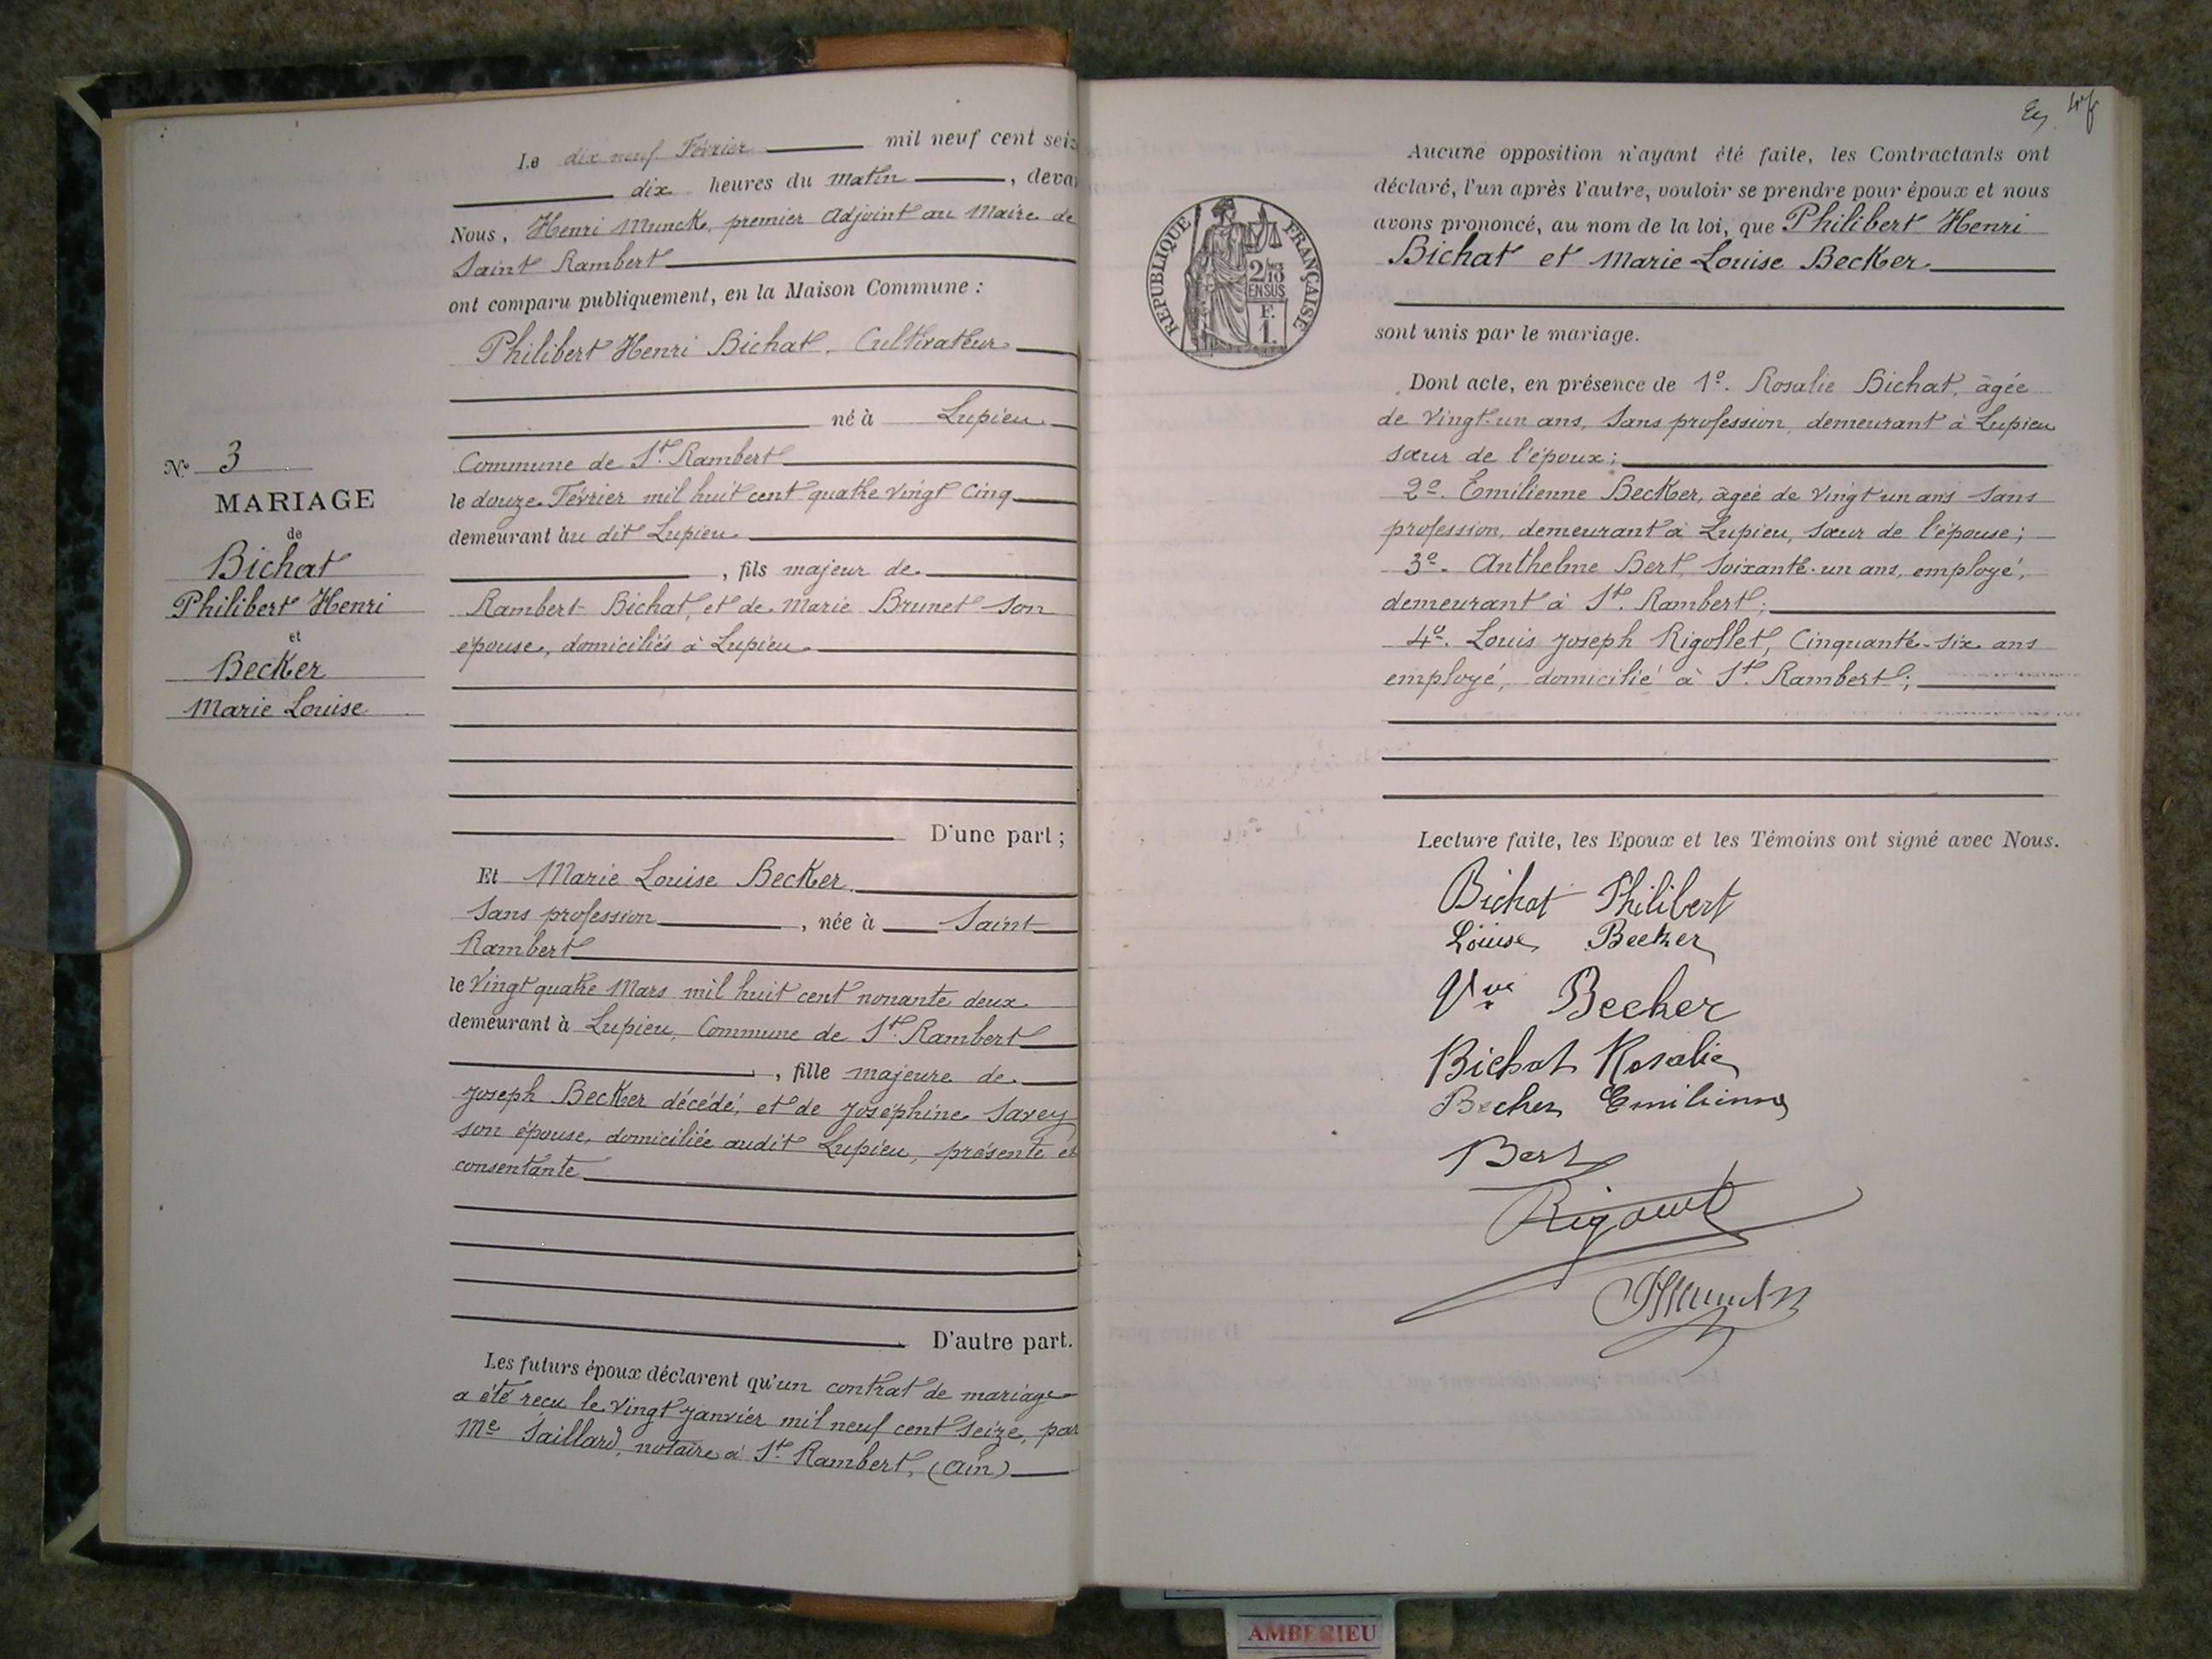 Le dix neuf Février mil neuf cent seiz
dix heures du matin, deva
Nous, Henri Munck, premier Adjoint au Maire de
Saint Rambert
ont comparu publiquement, en la Maison Commune :
Philibert Henri Bichat, Cultivateur
né à Lupieu
Commune de St. Rambert
le douze Février mil huit cent quatre vingt Cinq
demeurant au dit Lupieu
, fils majeur de
Rambert Bichat, et de Marie Brunet son
épouse, domiciliés à Lupieu
D'une part ;
Nº 3
MARIAGE
de
Bichat
Philibert Henri
et
Becker
Marie Louise
Et Marie Louise Becker
Sans profession, née à Saint
Rambert
le Vingt quatre Mars mil huit cent nonante deux
demeurant à Lupieu, Commune de St. Rambert
, fille majeure de
Joseph Becker décédé, et de Joséphine Savey
son épouse, domiciliée audit Lupieu, présente et
consentante
D'autre part.
Les futurs époux déclarent qu'un contrat de mariage
a été reçu le vingt Janvier mil neuf cent seize, par
Me Saillard, notaire à St. Rambert, (Ain)
RÉPUBLIQUE FRANÇAISE
2/10 ENSUS
F. 1.
Aucune opposition n'ayant été faite, les Contractants ont
déclaré, l'un après l'autre, vouloir se prendre pour époux et nous
avons prononcé, au nom de la loi, que Philibert Henri
Bichat et Marie Louise Becker
sont unis par le mariage.
Dont acte, en présence de 1º. Rosalie Bichat, âgée
de vingt-un ans, Sans profession, demeurant à Lupieu
sœur de l'époux ;
2º. Emilienne Becker, âgée de vingt un ans Sans
profession, demeurant à Lupieu, sœur de l'épouse ;
3º. Anthelme Bert, Soixante-un ans, employé,
demeurant à St. Rambert ;
4º. Louis Joseph Rigollet, Cinquante-six ans
employé, domicilié à St. Rambert ;
Lecture faite, les Epoux et les Témoins ont signé avec Nous.
Bichat Philibert
Louise Becker
Vve Becker
Bichat Rosalie
Becker Emilienne
Bert
AMBERIEU